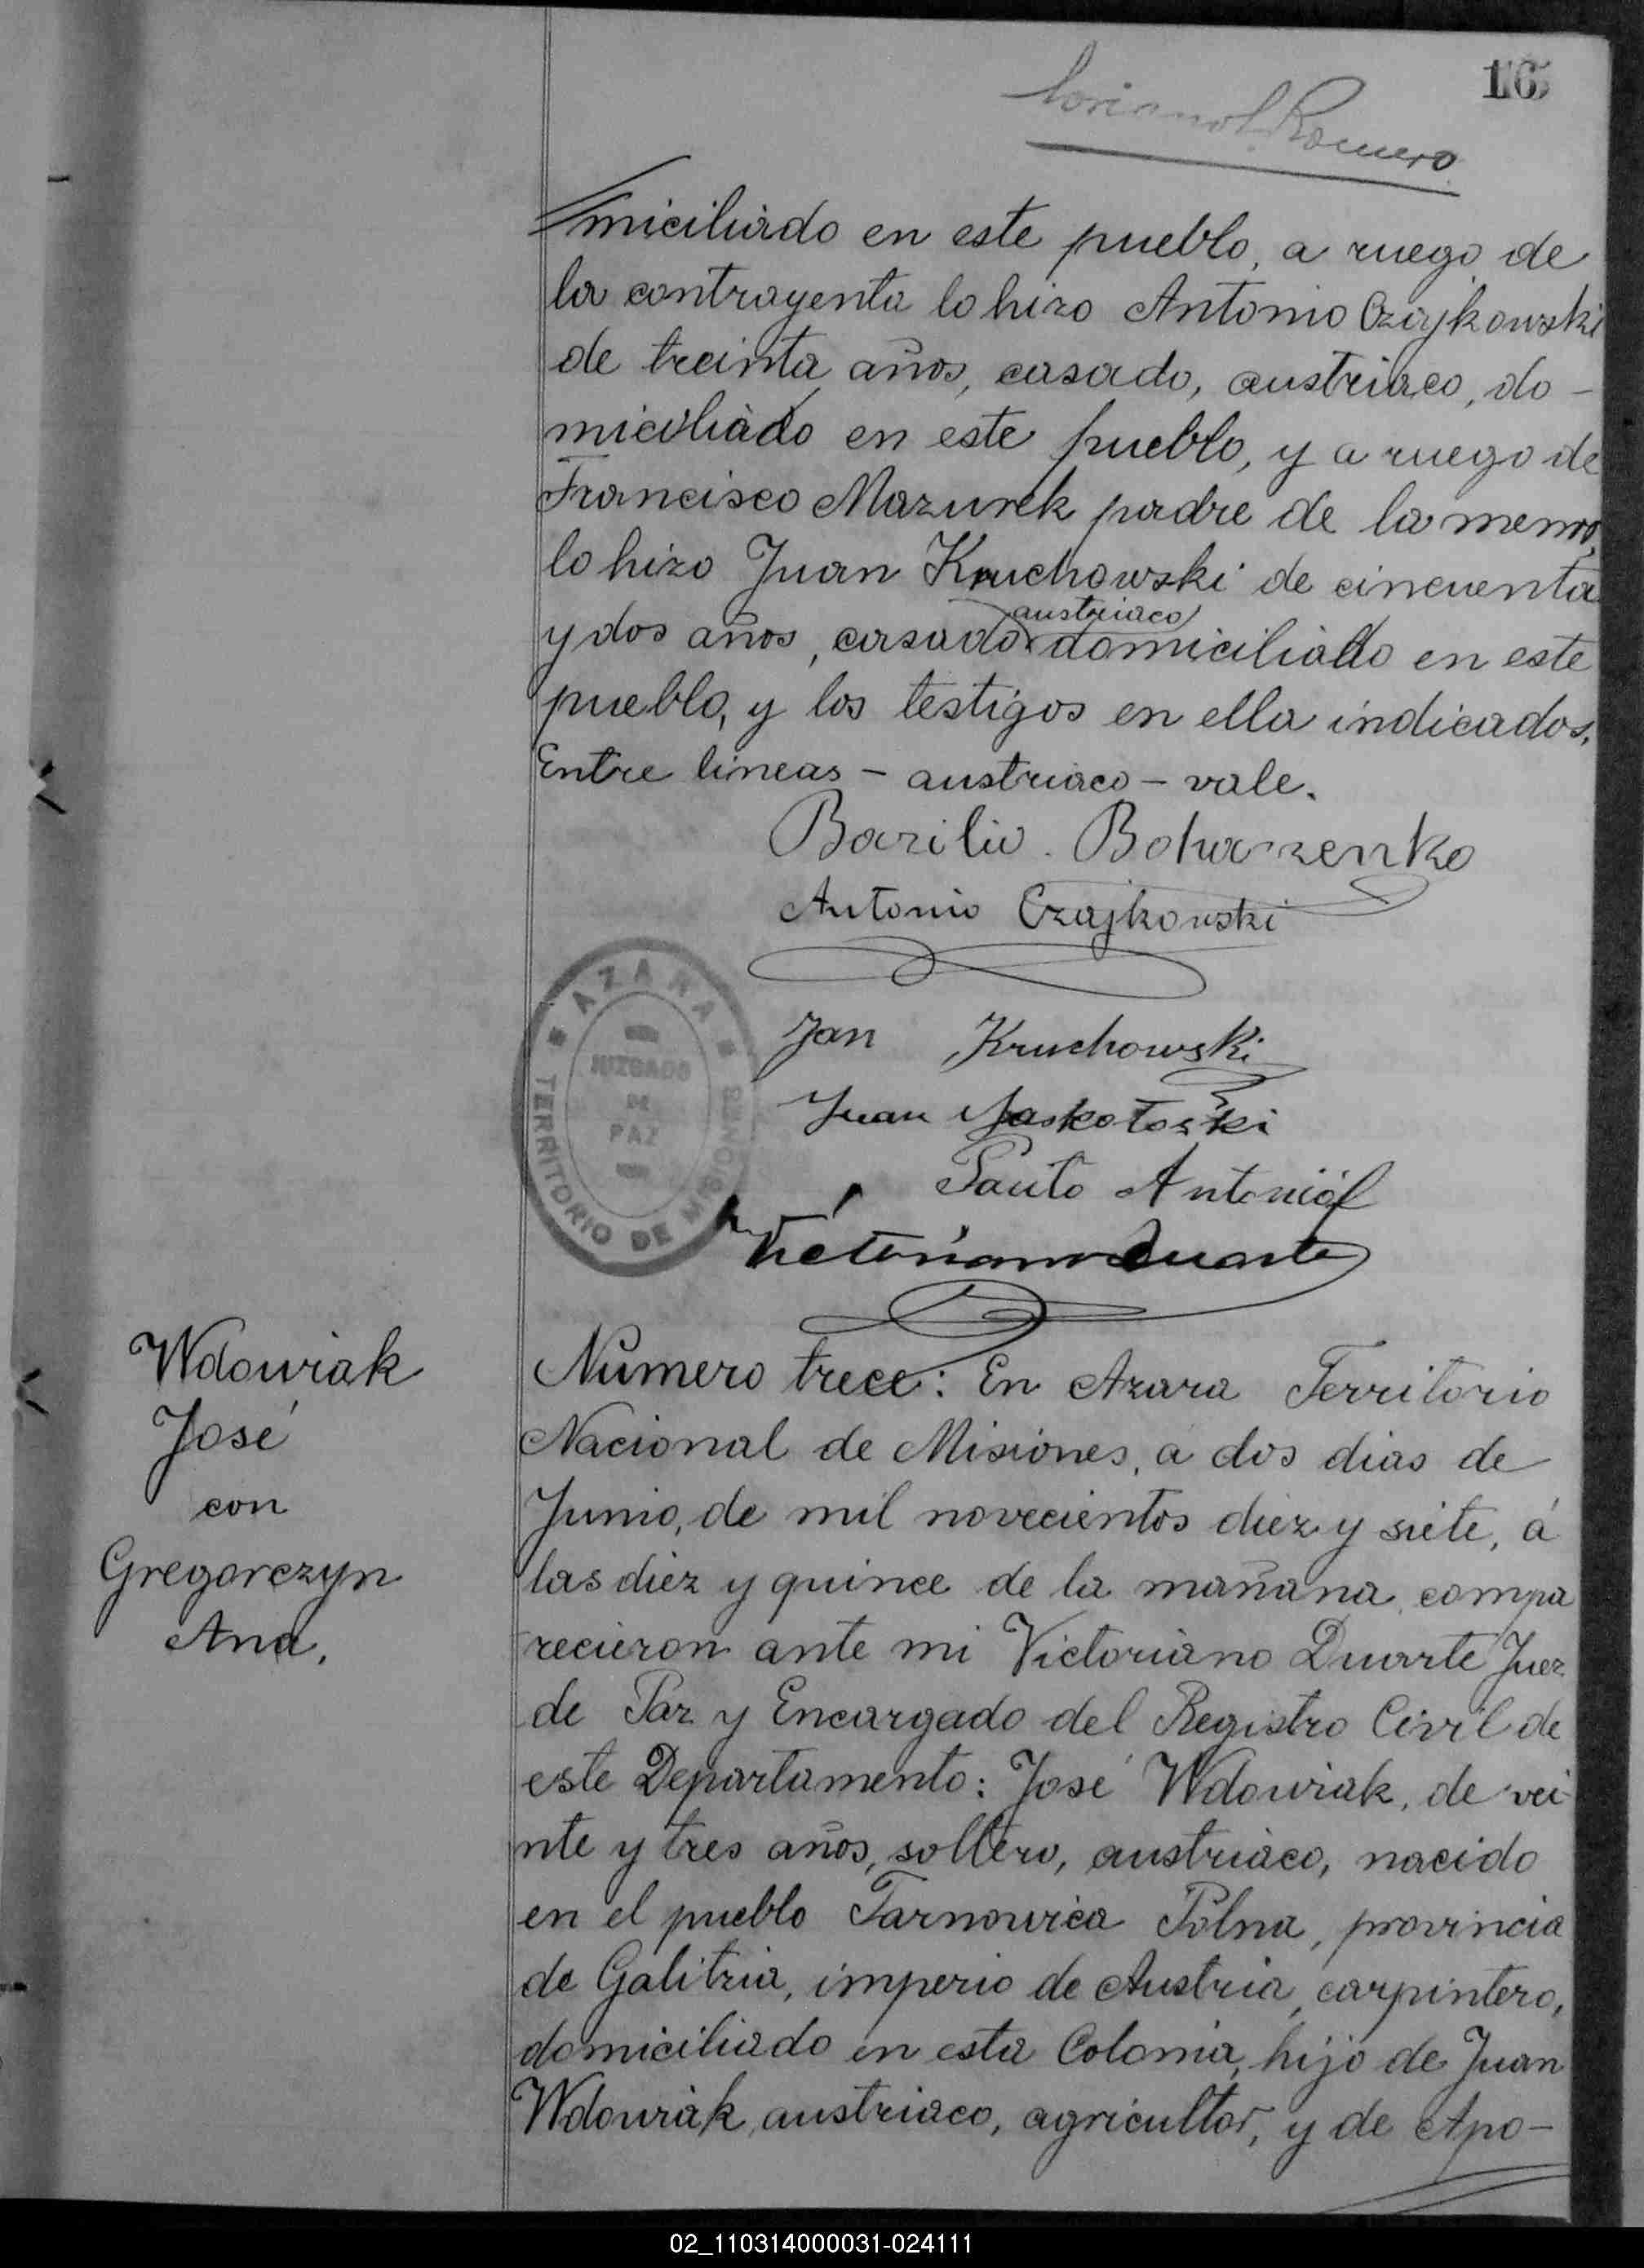 16
Romero
miciliado en este pueblo, a ruego de
la contrayenta lo hizo Antonio Czajkowski
de treinta años, casado, austriaco, do-
miciliado en este pueblo, y a ruego de
Francisco Mazurek padre de la menor,
lo hizo Juan Kruchowski de cincuenta
austriaco
y dos años, casado domiciliado en este
pueblo, y los testigos en ella indicados.
Entre lineas - austriaco - vale.
Bazilio Bohaczenko
Antonio Czajkowski
Jan Kruchowski
Juan
Antonio
Victoriano Duarte
AZARA
JUZGADO
DE
PAZ
TERRITORIO DE MISIONES
Wdowiak
José
con
Gregorczyn
Ana.
Número trece: En Azara Territorio
Nacional de Misiones, a dos dias de
Junio, de mil novecientos diez y siete, á
las diez y quince de la mañana, compa
recieron ante mi Victoriano Duarte Juez
de Paz y Encargado del Registro Civil de
este Departamento: José Wdowiak, de vei-
nte y tres años, soltero, austriaco, nacido
en el pueblo Tarnowica Polna, provincia
de Galitzia, imperio de Austria, carpintero,
domiciliado en esta Colonia, hijo de Juan
Wdowiak, austriaco, agricultor, y de Apo-
02_110314000031-024111